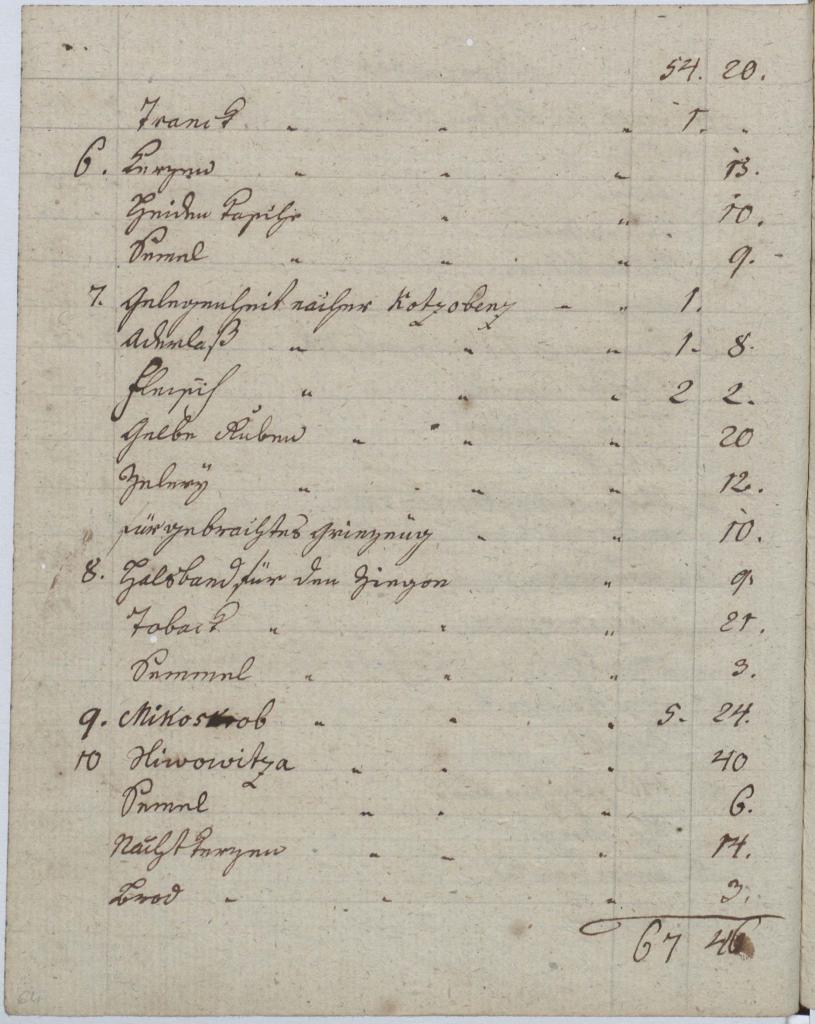 54. 20.
Tranck " " " 1. "
6. Kerzen " " " 13.
Heiden " " 10.
Semel " " " 9.
7. Gelegenheit nacher Kotzobenz " " 1.
Aderlaß " " " 1. 8.
Fleisch " " " 2 2.
Gelbe Ruben " " " 20
Zelery " " " 12.
für gebrachtes Grienzeug " " 10.
8. Halsband für den " 9.
Toback " " " 21.
Semmel " " " 3.
9. " " " 5. 24.
10 Sliwowitza " " " 40
Semel " " " 6.
Nachtkerzen " " " 14.
Brod " " " 3.
67 46